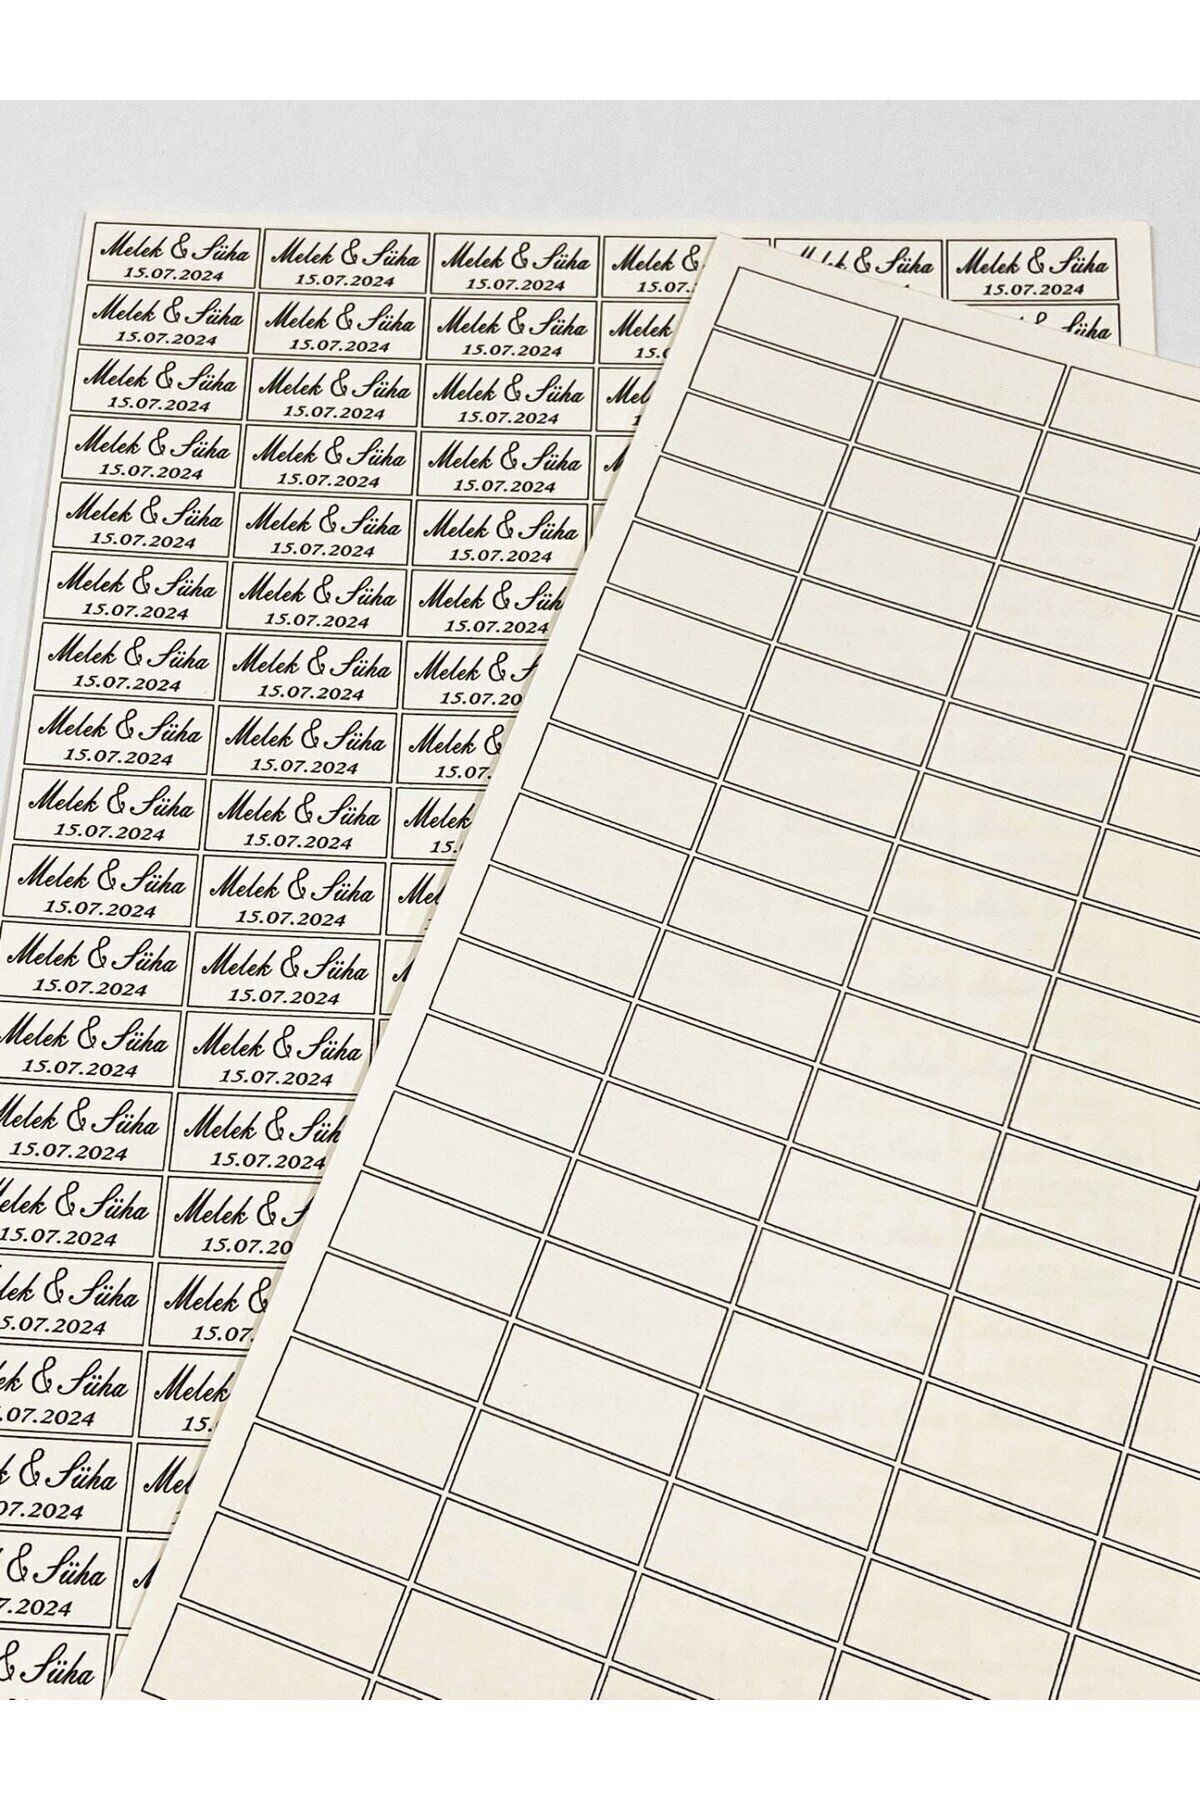 Melek & Süha Melek & Süha Melek & Süha Melek & & Süha Melek & Süha
15.07.2024 15.07.2024 15.07.2024 15.07.2024
Melek & Süha Melek & Süha Melek & Süha Melek Süha
15.07.2024 15.07.2024 15.07.2024
Melek & Süha Melek & Süha Melek & Süha
15.07.2024 15.07.2024 15.07.2024
Melek & Süha Melek & Süha Melek & Süha
15.07.2024 15.07.2024 15.07.2024
Melek & Süha Melek & Süha Melek & Süha
15.07.2024 15.07.2024 15.07.2024
Melek & Süha Melek & Süha Melek &
15.07.2024 15.07.2024 15.07.2024
Melek & Süha Melek & Süha Melek &
15.07.2024 15.07.2024
Melek & Süha Melek & Süha Melek &
15.07.2024 15.07.2024
Melek & Süha Melek & Süha Melek
15.07.2024 15.07.2024
Melek & Süha Melek & Süha
15.07.2024 15.07.2024
Melek & Süha Melek & Süha
15.07.2024 15.07.2024
Melek & Süha Melek & Süha
15.07.2024 15.07.2024
Melek & Süha Melek &
15.07.2024 15.07.2024
& Süha Melek &
15.07.2024
& Süha Melek &
& Süha Melek
& Süha
& Süha
& Süha